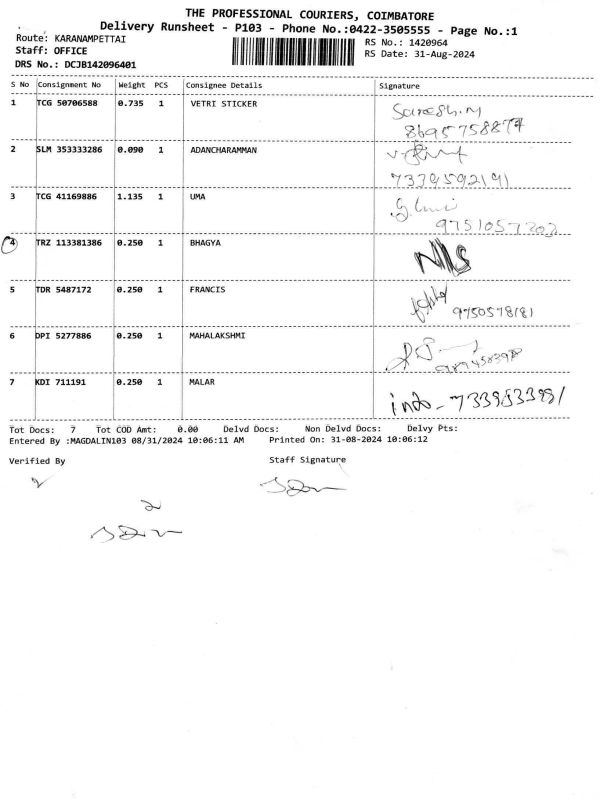 THE PROFESSIONAL COURIERS, COIMBATORE
Delivery Runsheet - P103 - Phone No.:0422-3505555 - Page No.:1
Route: KARANAMPETTAI RS No.: 1420964
Staff: OFFICE RS Date: 31-Aug-2024
DRS No.: DCJB142096401
S No Consignment No Weight PCS Consignee Details Signature
1 TCG 50706588 0.735 1 VETRI STICKER Suresh.M
8695758877
2 SLM 353333286 0.090 1 ADANCHARAMMAN
7339592191
3 TCG 41169886 1.135 1 UMA
9751057202
4 TRZ 113381386 0.250 1 BHAGYA
5 TDR 5487172 0.250 1 FRANCIS
9750578181
6 DPI 5277886 0.250 1 MAHALAKSHMI
7 KDI 711191 0.250 1 MALAR
Tot Docs: 7 Tot COD Amt: 0.00 Delvd Docs: Non Delvd Docs: Delvy Pts:
Entered By :MAGDALIN103 08/31/2024 10:06:11 AM Printed On: 31-08-2024 10:06:12
Verified By Staff Signature